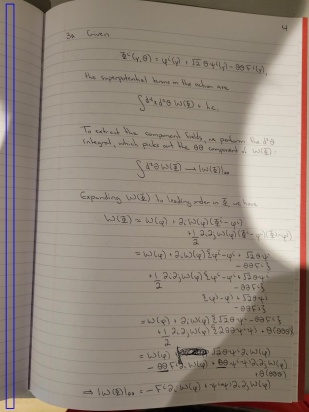 4
3. Given
Φⁱ(y,θ) = φⁱ(y) + √2 θψⁱ(y) - θθFⁱ(y),
the superpotential terms in the action are
∫d⁴x d²θ W(Φ) + h.c.
To extract the component fields, we perform the d²θ
integral, which picks out the θθ component of W(Φ):
∫d²θ W(Φ) → W(Φ)|θθ
Expanding W(Φ) to leading order in Φ, we have
W(Φ) = W(φ) + ∂ᵢW(φ)(Φⁱ-φⁱ)
+ 1/2 ∂ᵢ∂ⱼW(φ)(Φⁱ-φⁱ)(Φʲ-φʲ)
= W(φ) + ∂ᵢW(φ){φⁱ-φⁱ+√2θψⁱ
-θθFⁱ}
+ 1/2 ∂ᵢ∂ⱼW(φ){φⁱ-φⁱ+√2θψⁱ
-θθFⁱ}
{φʲ-φʲ+√2θψʲ
-θθFʲ}
= W(φ) + ∂ᵢW(φ){√2θψⁱ-θθFⁱ}
+ 1/2 ∂ᵢ∂ⱼW(φ){2θψⁱθψʲ + O(θθθ)}
= W(φ) + √2θψⁱ∂ᵢW(φ)
-θθFⁱ∂ᵢW(φ) ∂ᵢ∂ⱼW(φ)
+O(θθθ)
⇒ W(Φ)|θθ = -Fⁱ∂ᵢW(φ) ψⁱψʲ∂ᵢ∂ⱼW(φ)